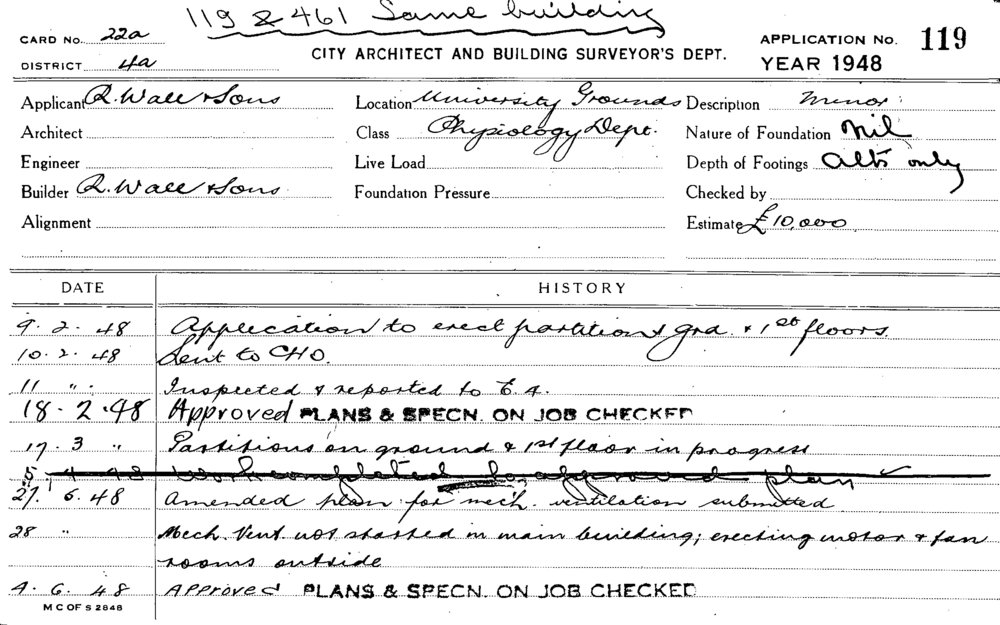 119 & 461 Same building
CARD No. 22a
CITY ARCHITECT AND BUILDING SURVEYOR'S DEPT.
APPLICATION No. 119
DISTRICT 4a
YEAR 1948
Applicant R. Wall & Sons Location University Grounds Description Minor
Architect Class Physiology Dept. Nature of Foundation Nil
Engineer Live Load Depth of Footings Alts only
Builder R. Wall & Sons Foundation Pressure Checked by
Alignment Estimate £10,000
DATE HISTORY
9. 2. 48 Application to erect partitions grd. & 1st floors.
10. 2. 48 Sent to CHO.
11 " . Inspected & reported to C.A.
18. 2. 48 Approved PLANS & SPECN. ON JOB CHECKED
17. 3 " Partitions on ground & 1st floor in progress
5. 4 48 Work completed to approved plan
27. 5. 48 Amended plan for mech. ventilation submitted
28 " Mech. Vent. not started in main building; erecting motor & fan
rooms outside
4. 6. 48 Approved PLANS & SPECN. ON JOB CHECKED
M C OF S 2848